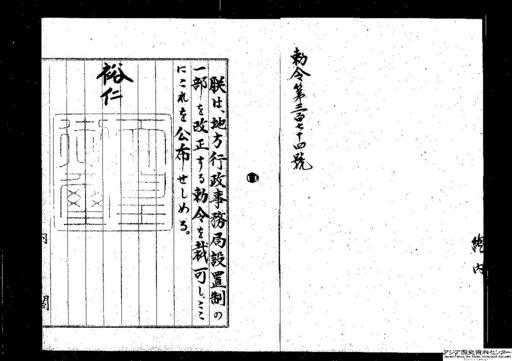 勅令第三百七十四號
朕は、地方行政事務局設置制の
一部を改正する勅令を裁可し、ここ
にこれを公布せしめる。
裕仁
天皇
御璽
内閣
総内
アジア歴史資料センター